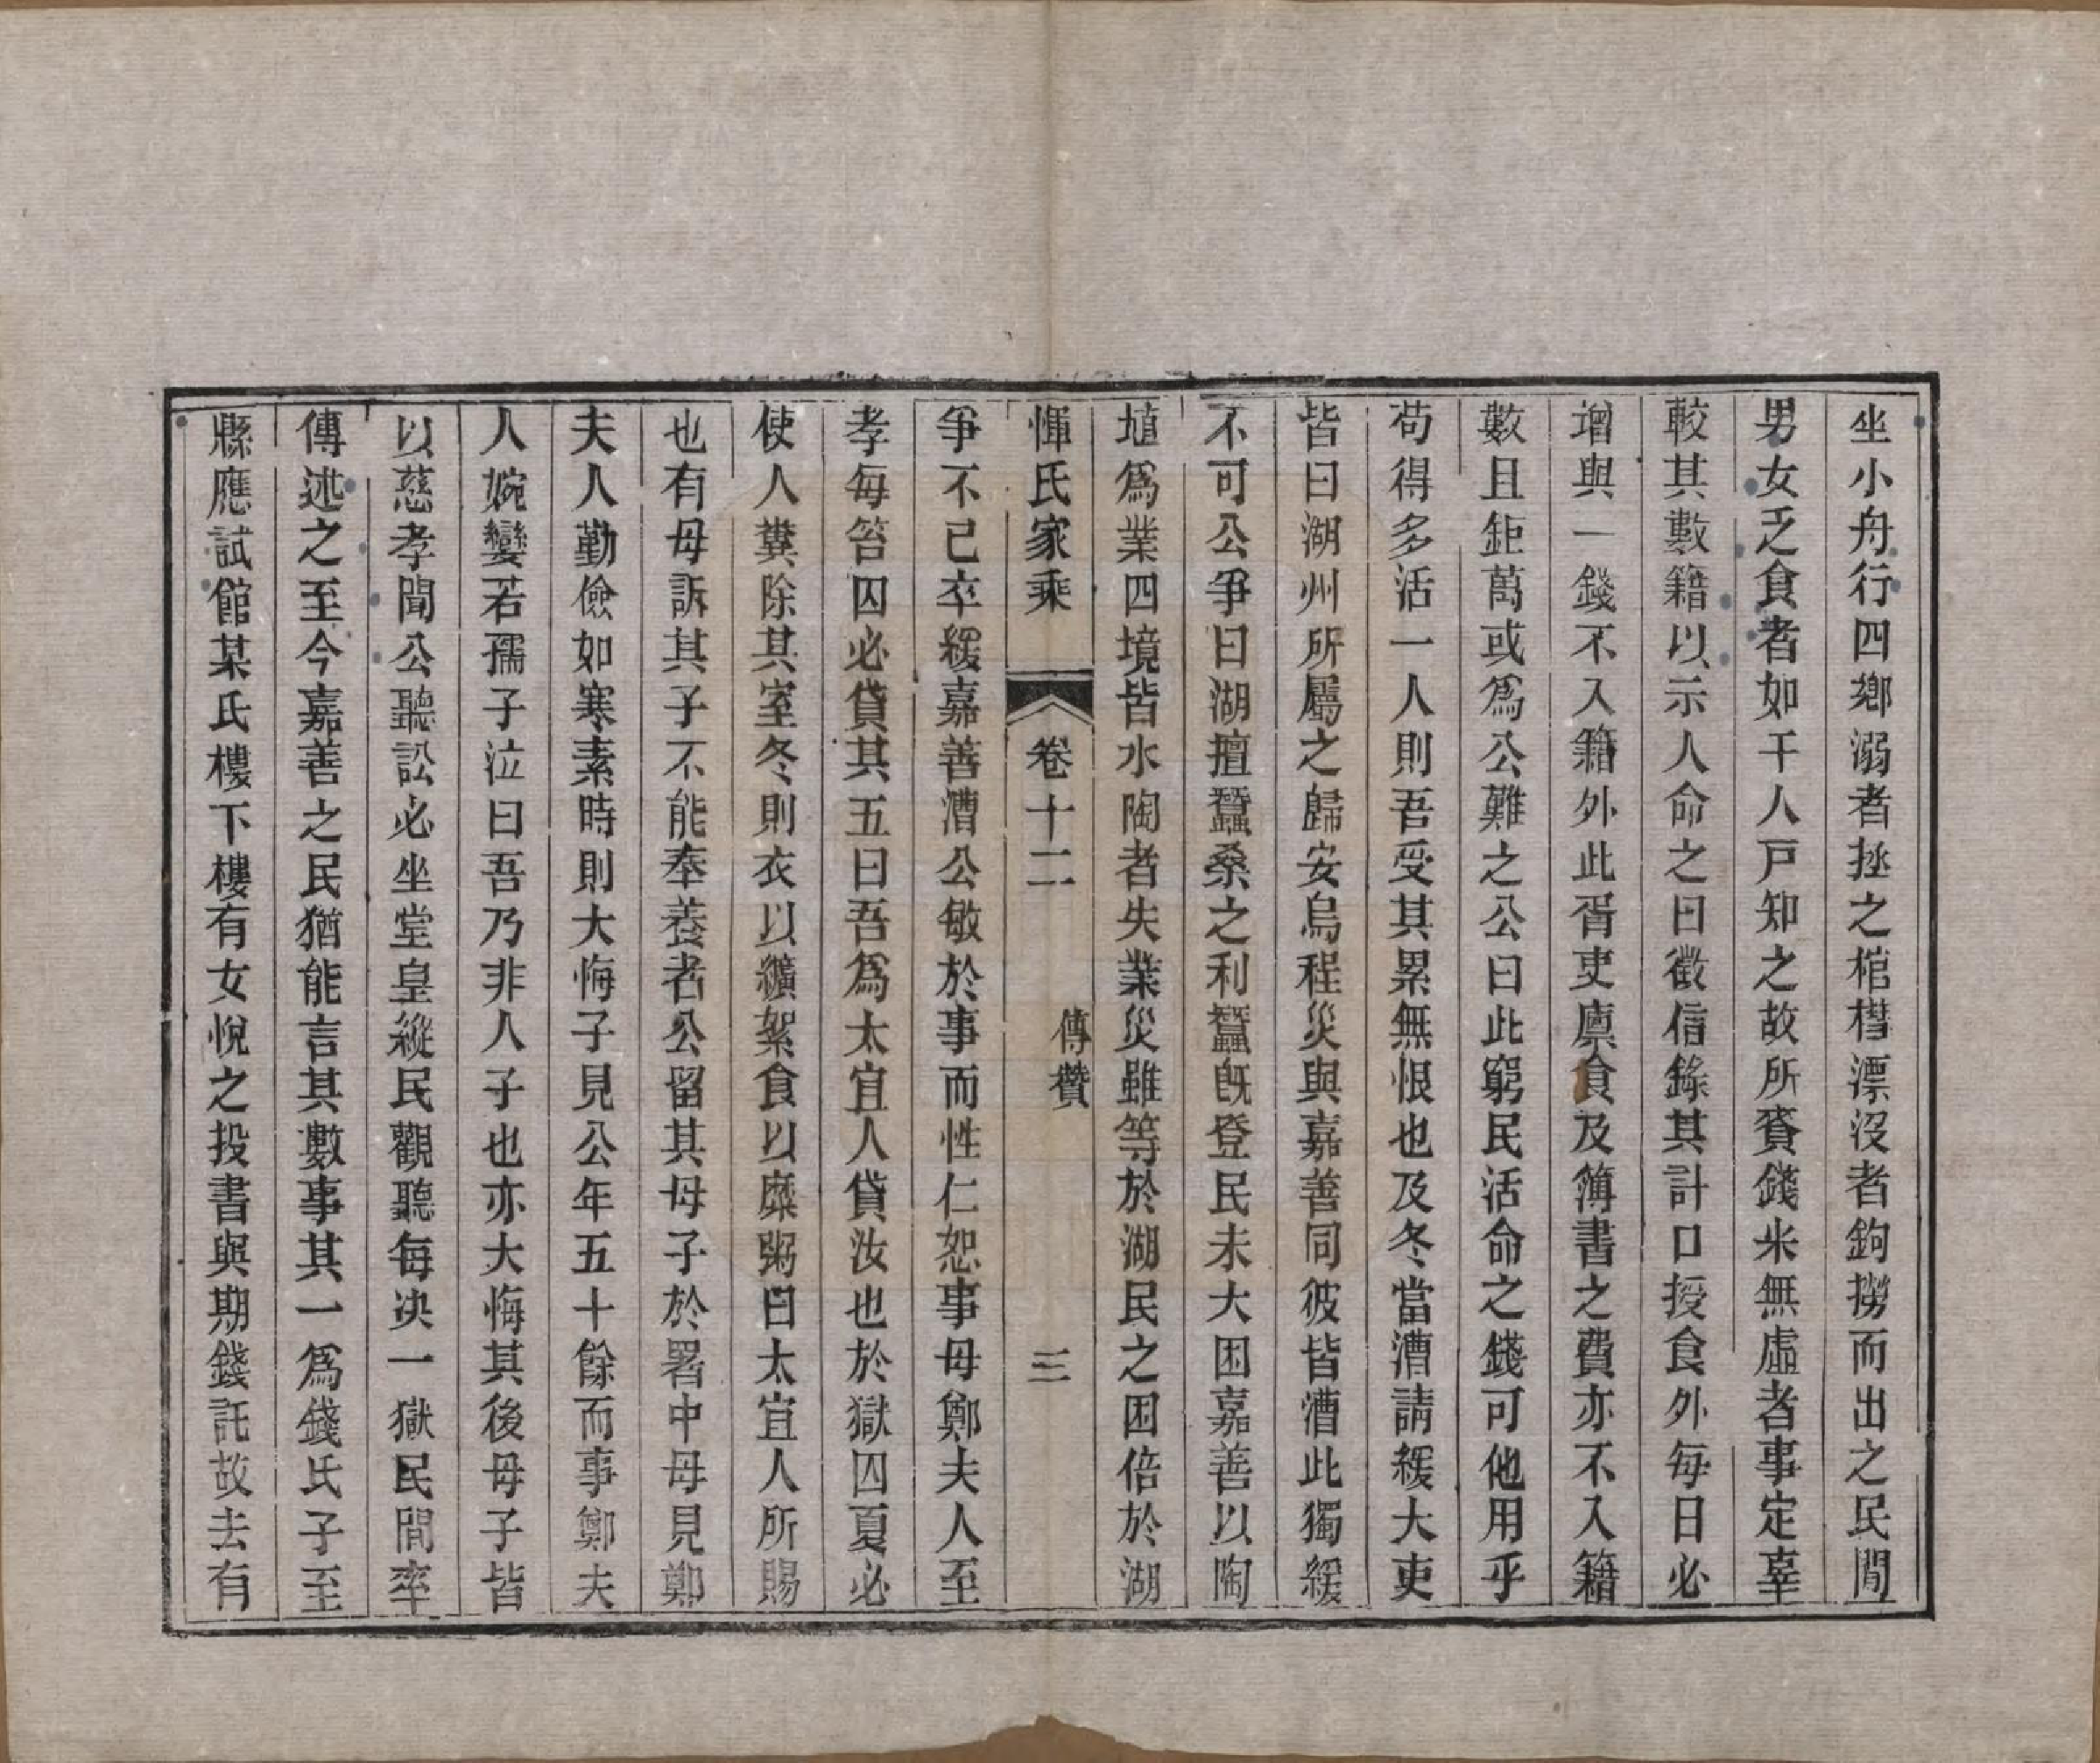 坐小舟行四鄉溺者拯之棺槥漂沒者鉤撈而出之民間
男女乏食者如干人戸知之故所賚錢米無虛者事定辜
較其數籍以示人命之曰徵信錄其計口授食外每日必
增與一錢不入籍外此胥吏廩食及簿書之費亦不入籍
數且鉅萬或爲公難之公曰此窮民活命之錢可他用乎
苟得多活一人則吾受其累無恨也及冬當漕請緩大吏
皆曰湖州所屬之歸安烏程災與嘉善同彼皆漕此獨緩
不可公爭曰湖擅蠶桑之利蠶旣登民未大困嘉善以陶
埴爲業四境皆水陶者失業災雖等於湖民之困倍於湖
惲氏家乘 卷十二 傳贊 三
爭不已卒緩嘉善漕公敏於事而性仁恕事母鄭夫人至
孝每笞囚必貸其五曰吾爲太宜人貸汝也於獄囚夏必
使人糞除其室冬則衣以纊絮食以糜粥曰太宜人所賜
也有母訴其子不能奉養者公留其母子於署中母見鄭
夫人勤儉如寒素時則大悔子見公年五十餘而事鄭夫
人婉孌若孺子泣曰吾乃非人子也亦大悔其後母子皆
以慈孝聞公聽訟必坐堂皇縱民觀聽每決一獄民間率
傳述之至今嘉善之民猶能言其數事其一爲錢氏子至
縣應試館某氏樓下樓有女悅之投書與期錢託故去有